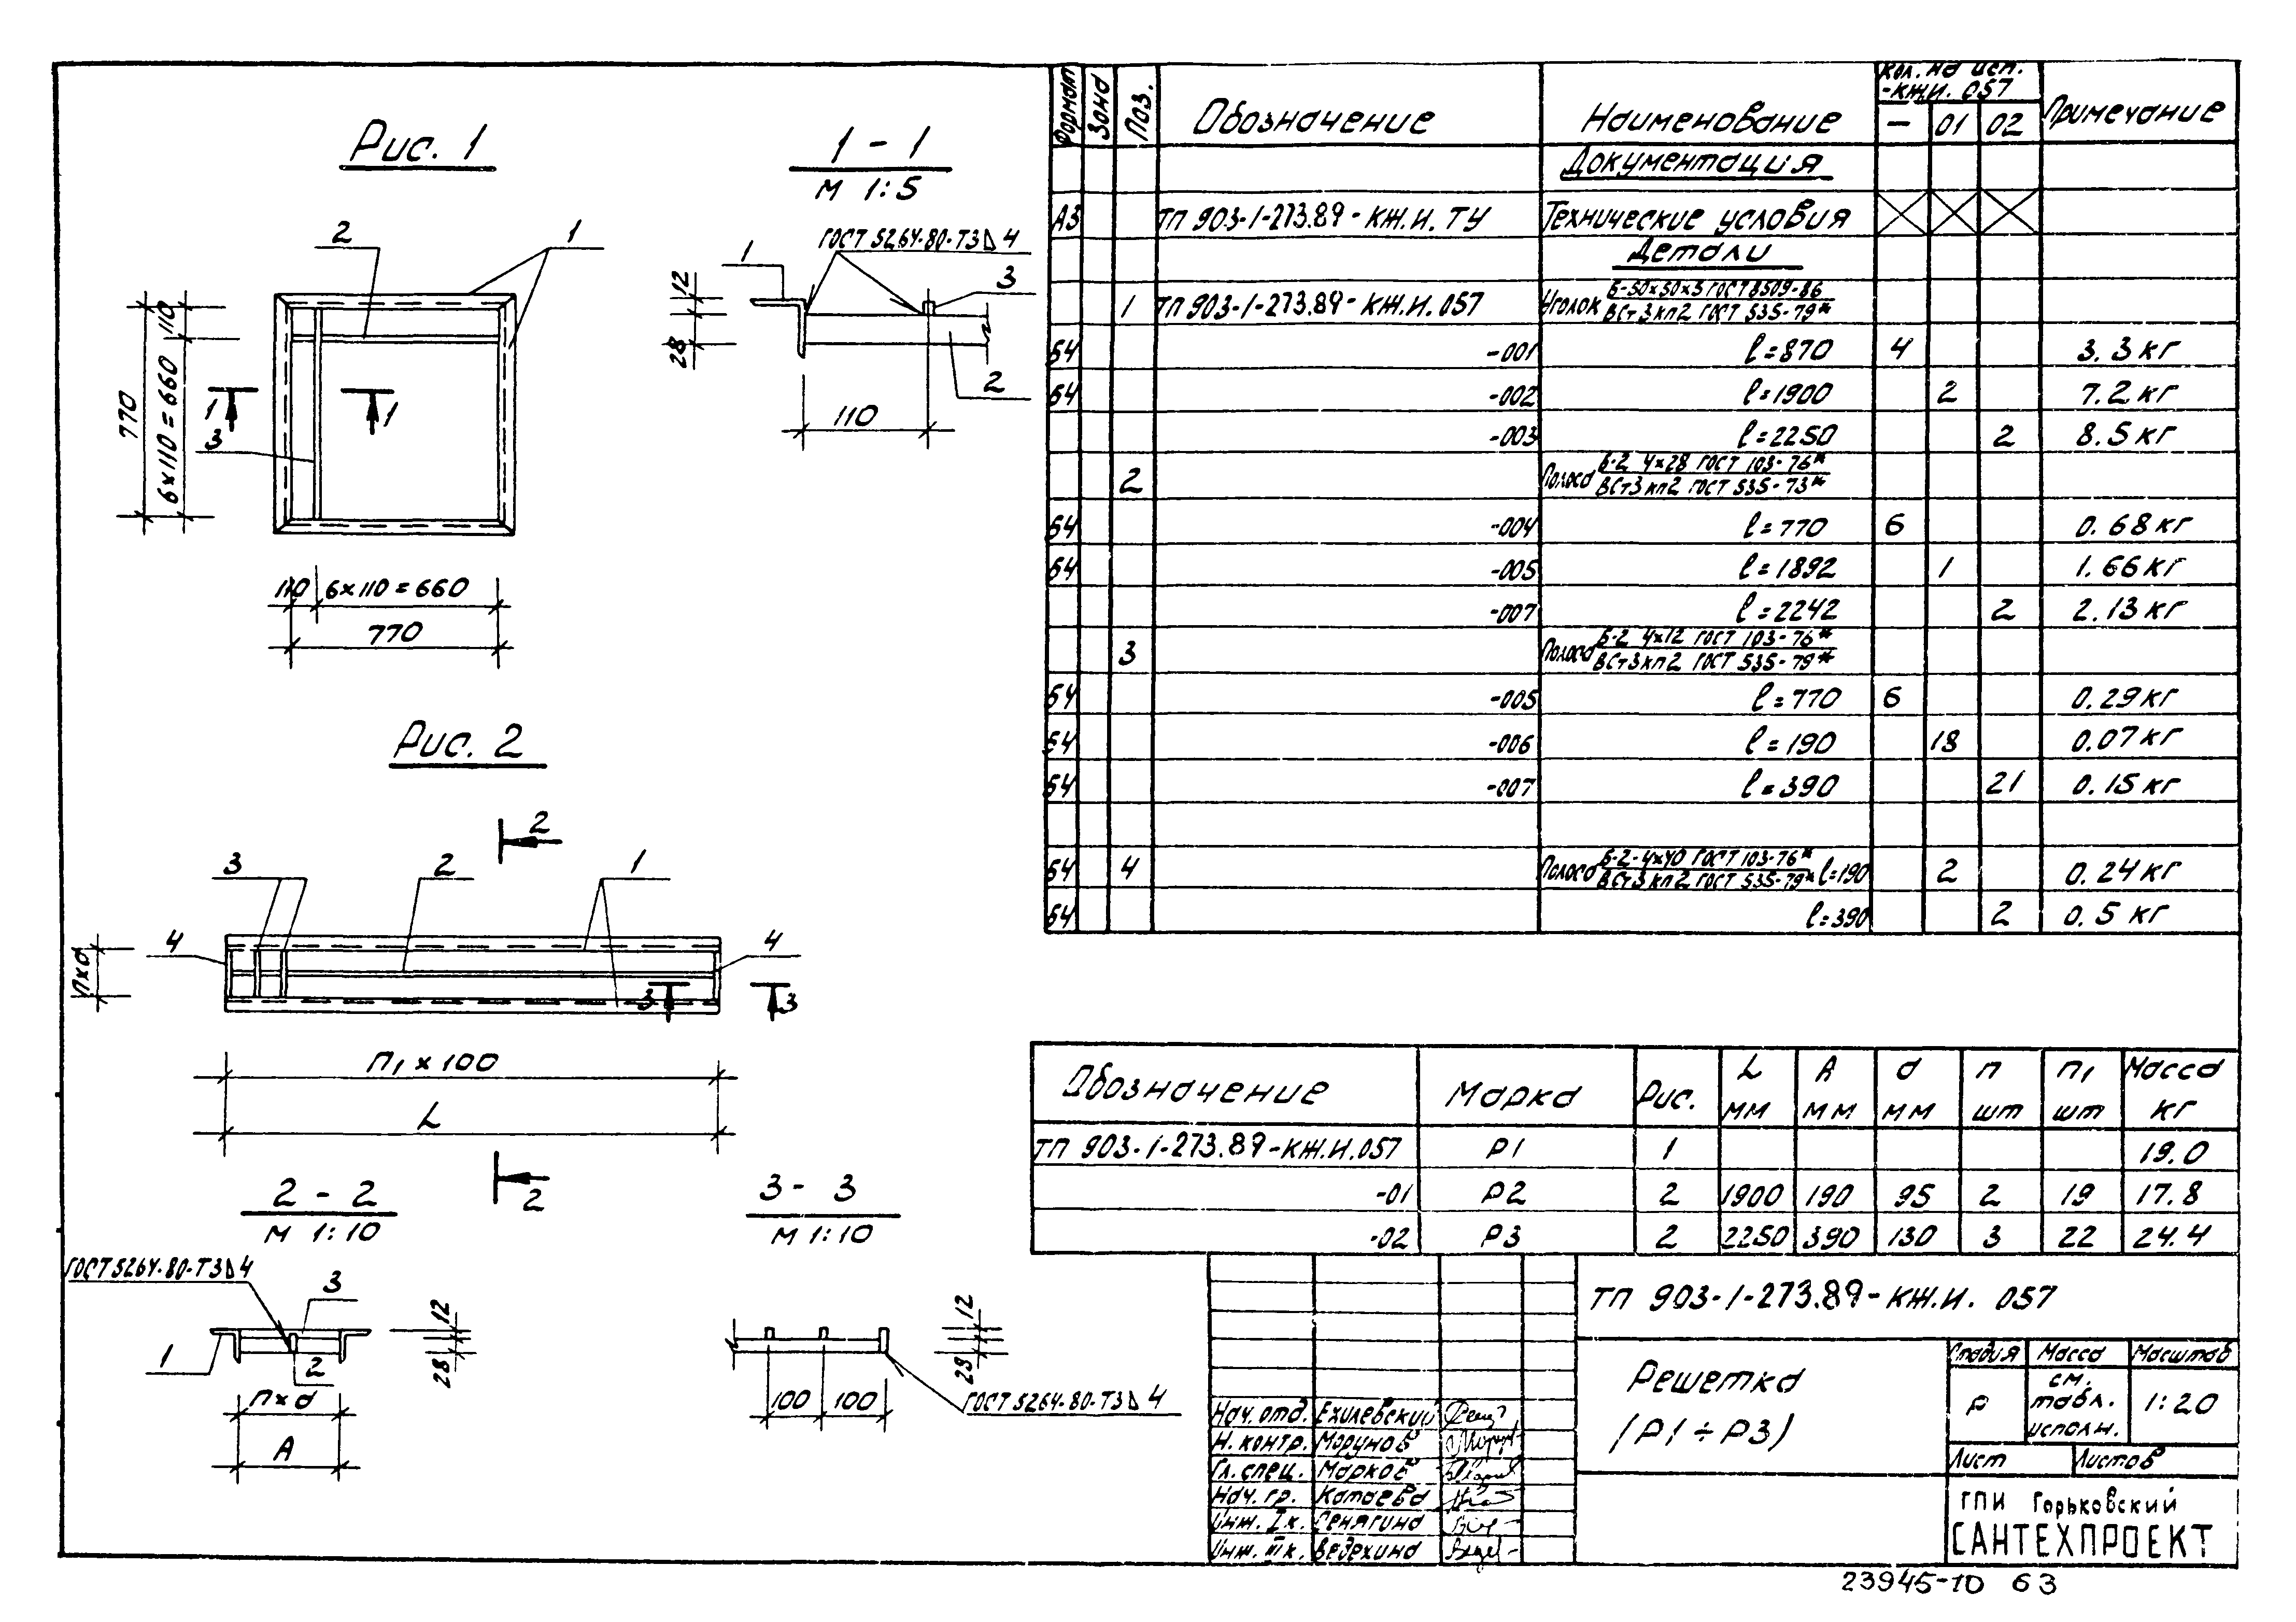 Рис. 1
2
1
110
6×110=660
770
1
1
3
110
6×110=660
770
1 - 1
М 1:5
ГОСТ 5264-80-Т3 4
1
3
12
28
2
110
Рис. 2
2
3
2
1
4
4
n×d
3
3
n₁ × 100
L
2
2 - 2
М 1:10
ГОСТ 5264-80-Т3 4
3
1
2
12
28
n×d
A
3 - 3
М 1:10
12
28
100
100
ГОСТ 5264-80-Т3 4
Формат Зона Поз. Обозначение Наименование Кол. на исп. -КЖ.И. 057 Примечание
— 01 02
Документация
А3 ТП 903-1-273.89-КЖ.И.ТУ Технические условия
Детали
1 ТП 903-1-273.89-КЖ.И.057 Уголок Б-50×50×5 ГОСТ 8509-86
ВСт3кп2 ГОСТ 535-79*
БЧ -001 ℓ=870 4 3.3 кг
БЧ -002 ℓ=1900 2 7.2 кг
БЧ -003 ℓ=2250 2 8.5 кг
2 Полоса Б-2 4×28 ГОСТ 103-76*
ВСт3кп2 ГОСТ 535-79*
БЧ -004 ℓ=770 6 0.68 кг
БЧ -005 ℓ=1892 1 1.66 кг
БЧ -007 ℓ=2242 2 2.13 кг
3 Полоса Б-2 4×12 ГОСТ 103-76*
ВСт3кп2 ГОСТ 535-79*
БЧ -005 ℓ=770 6 0.29 кг
БЧ -006 ℓ=190 18 0.07 кг
БЧ -007 ℓ=390 21 0.15 кг
БЧ 4 Полоса Б-2-4×40 ГОСТ 103-76*
ВСт3кп2 ГОСТ 535-79* ℓ=190 2 0.24 кг
БЧ ℓ=390 2 0.5 кг
Обозначение Марка Рис. L мм A мм d мм n шт n₁ шт Масса кг
ТП 903-1-273.89-КЖ.И.057 Р1 1 19.0
-01 Р2 2 1900 190 95 2 19 17.8
-02 Р3 2 2250 390 130 3 22 24.4
ТП 903-1-273.89-КЖ.И. 057
Решетка
(Р1 ÷ Р3)
Стадия Масса Масштаб
Р см. табл. исполн. 1:20
Лист Листов
ГПИ Горьковский
САНТЕХПРОЕКТ
Нач. отд. Ехилевский
Н. контр. Морунов
Гл. спец. Марков
Нач. гр. Катаева
Инж. I к. Сенягина
Инж. III к. Ведехина
23945-10 63